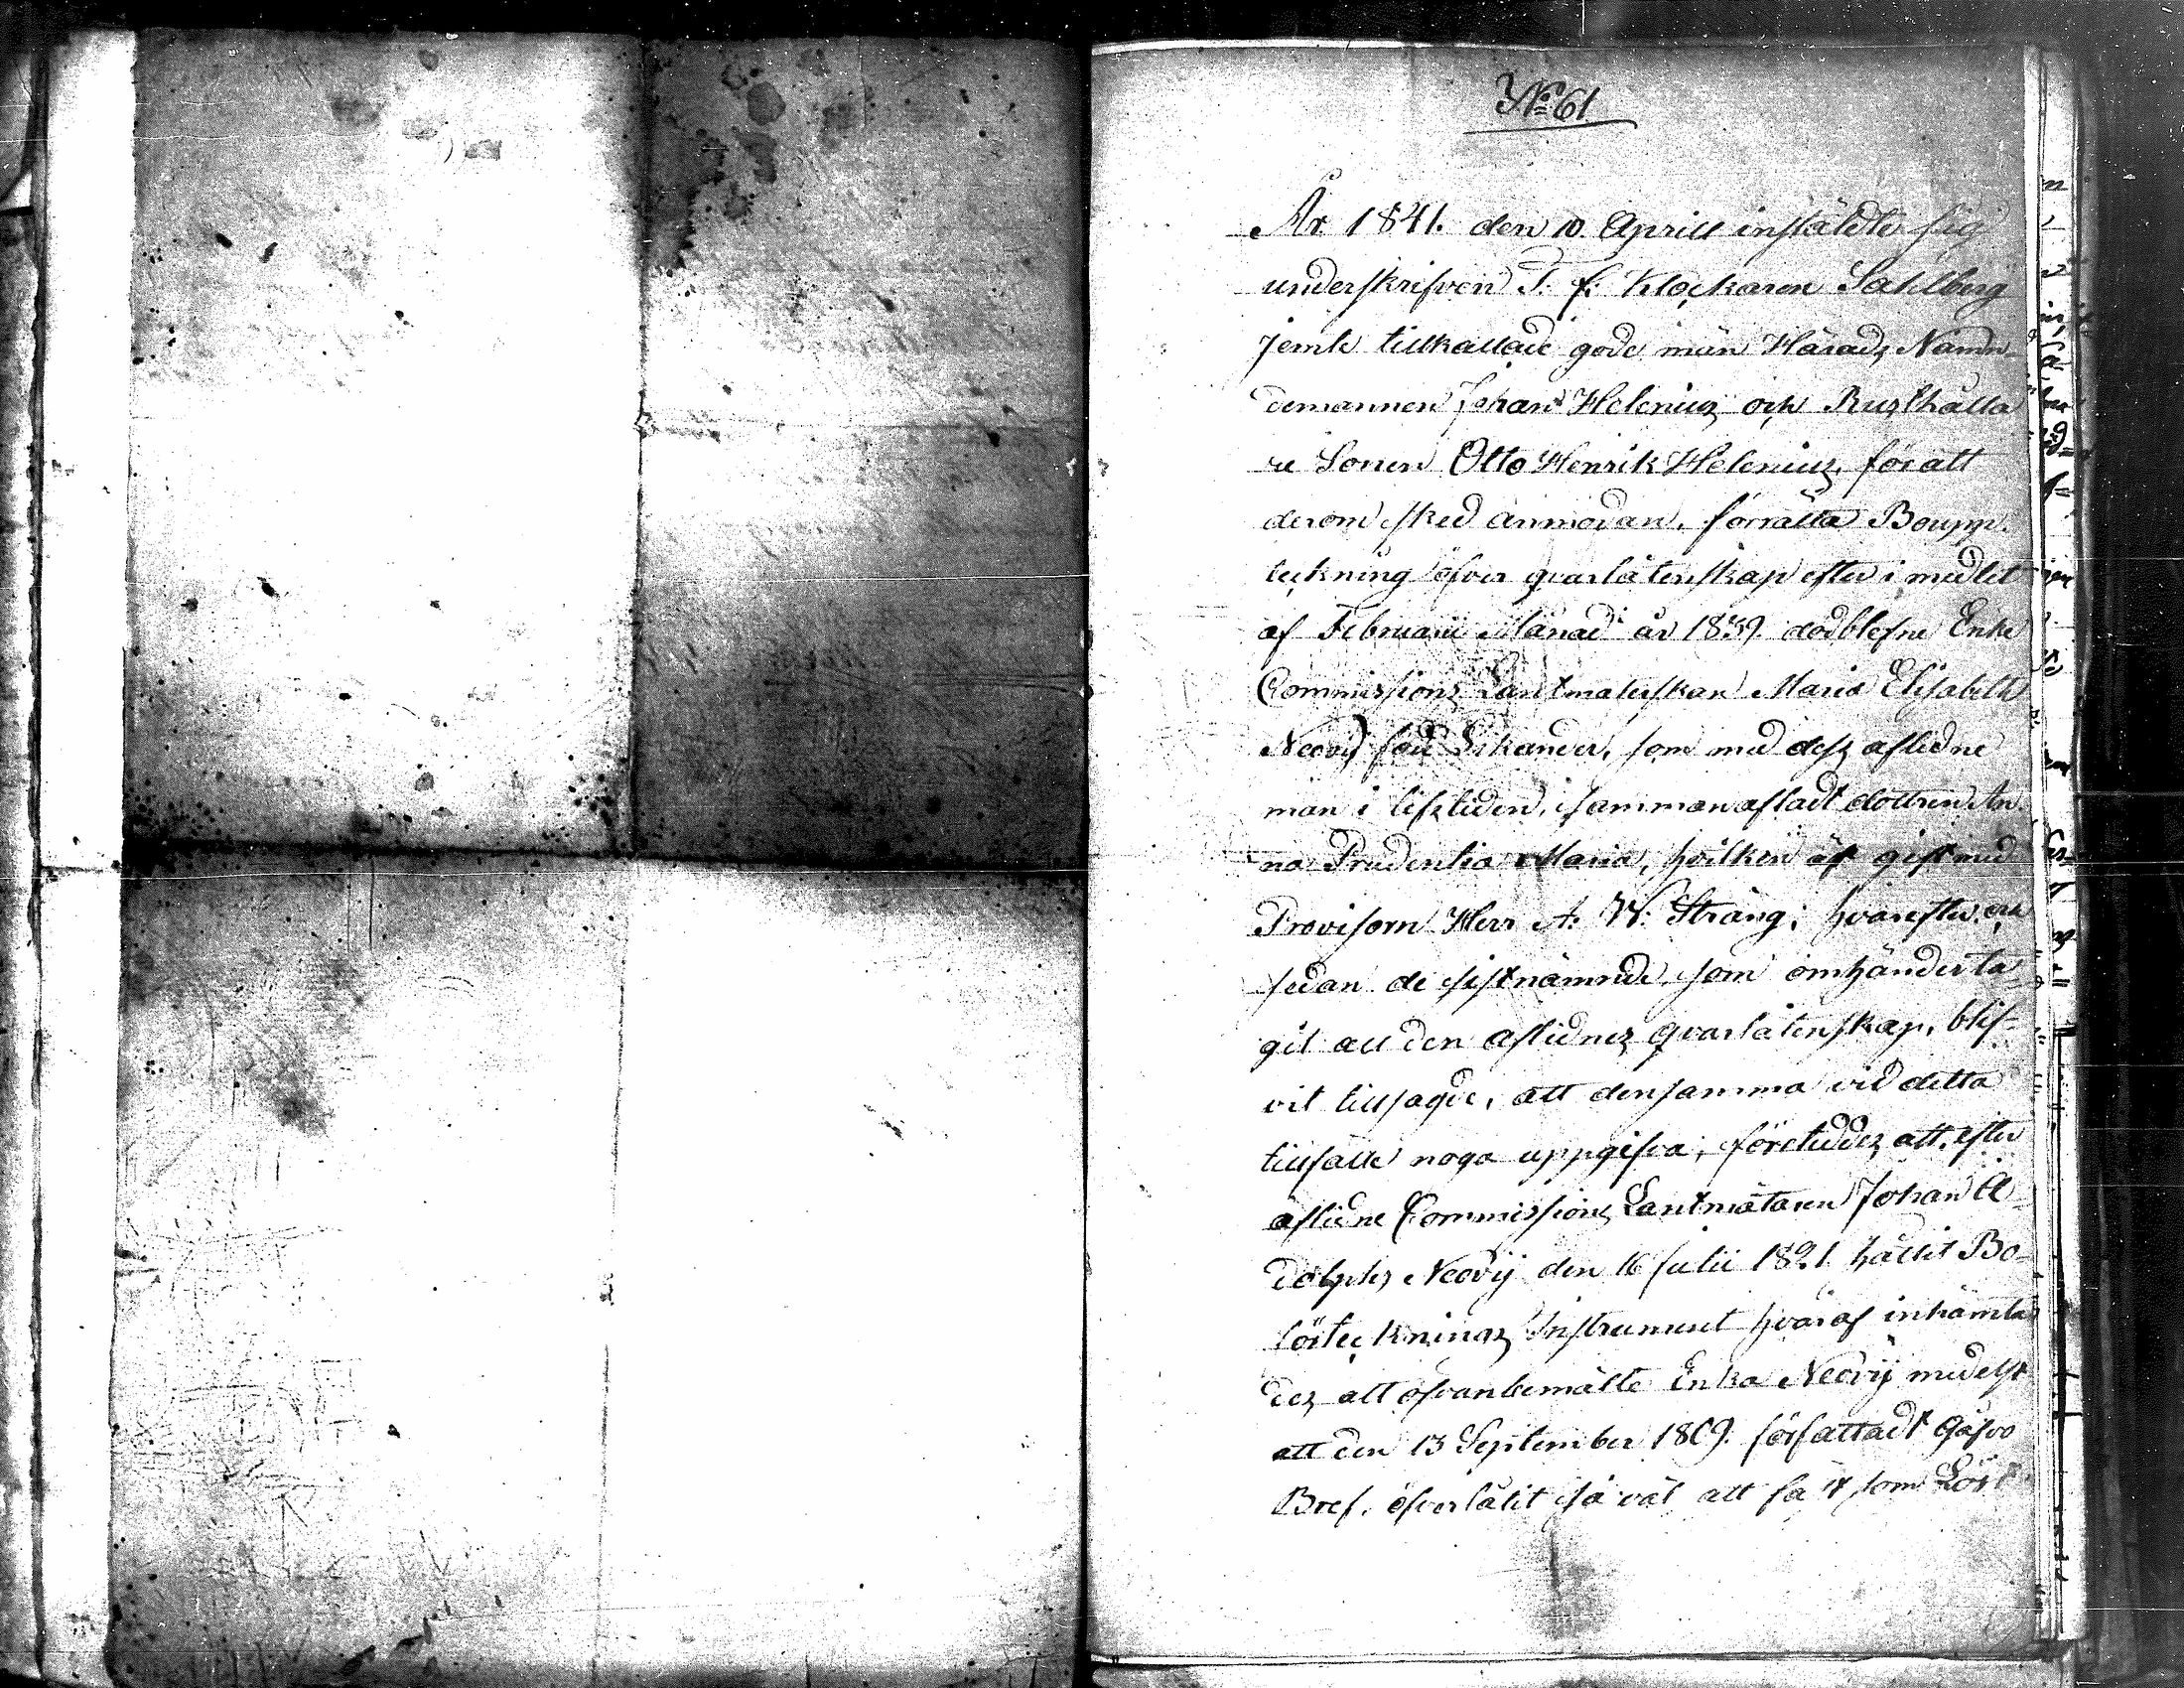 No 61
År 1841. den 10. Aprill instälde sig
underskrifven T. f. Klockaren Sahlberg
jemte tillkallade gode män Härads Nämn-
demannen Johan Helenius och Rusthålla
re Sonen Otto Henrik Helenius, för att
derom sked anmodan, förrätta Boupp-
teckning öfver qvarlåtenskap efter i medlet
af Februarii Månad år 1839. dödblefne Enke
Commissions Lantmäterskan Maria Elisabeth
Neovij född, som med dess aflidne
man i lifstiden, sammanafladt dottren An
na Prudentia Maria, hvilken är gift med
Provisorn Herr A. W. Strång; hvarefter och
sedan de sistnämnde, som omhändertа
git all den aflidnes qvarlåtenskap, blif-
vit tillsagde, att densamma vid detta
tillfälle noga uppgifva; företeddes att efter
aflidne Commissions Lantmätaren Johan A-
dolphs Neovij den 16 Julii 1821 hållit Bo-
förtecknings Instrument hvaraf inhämta
des att ofvanbemälte Enka Neovij medelst
ett den 13 September 1809. författadt Gåfvo
Bref, öfverlåtit så väl all fast som Lös